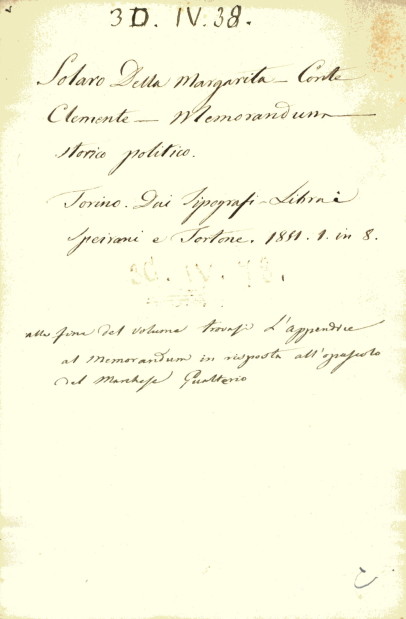 3D. IV. 38.
Solaro Della Margarita - Conte
Clemente - Memorandum
storico politico.
Torino. Dai Tipografi-Librai
Speirani e Tortone. 1851. 1. in 8.
alla fine del volume trovasi L'appendice
al Memorandum in risposta all'opuscolo
del Marchese Gualterio